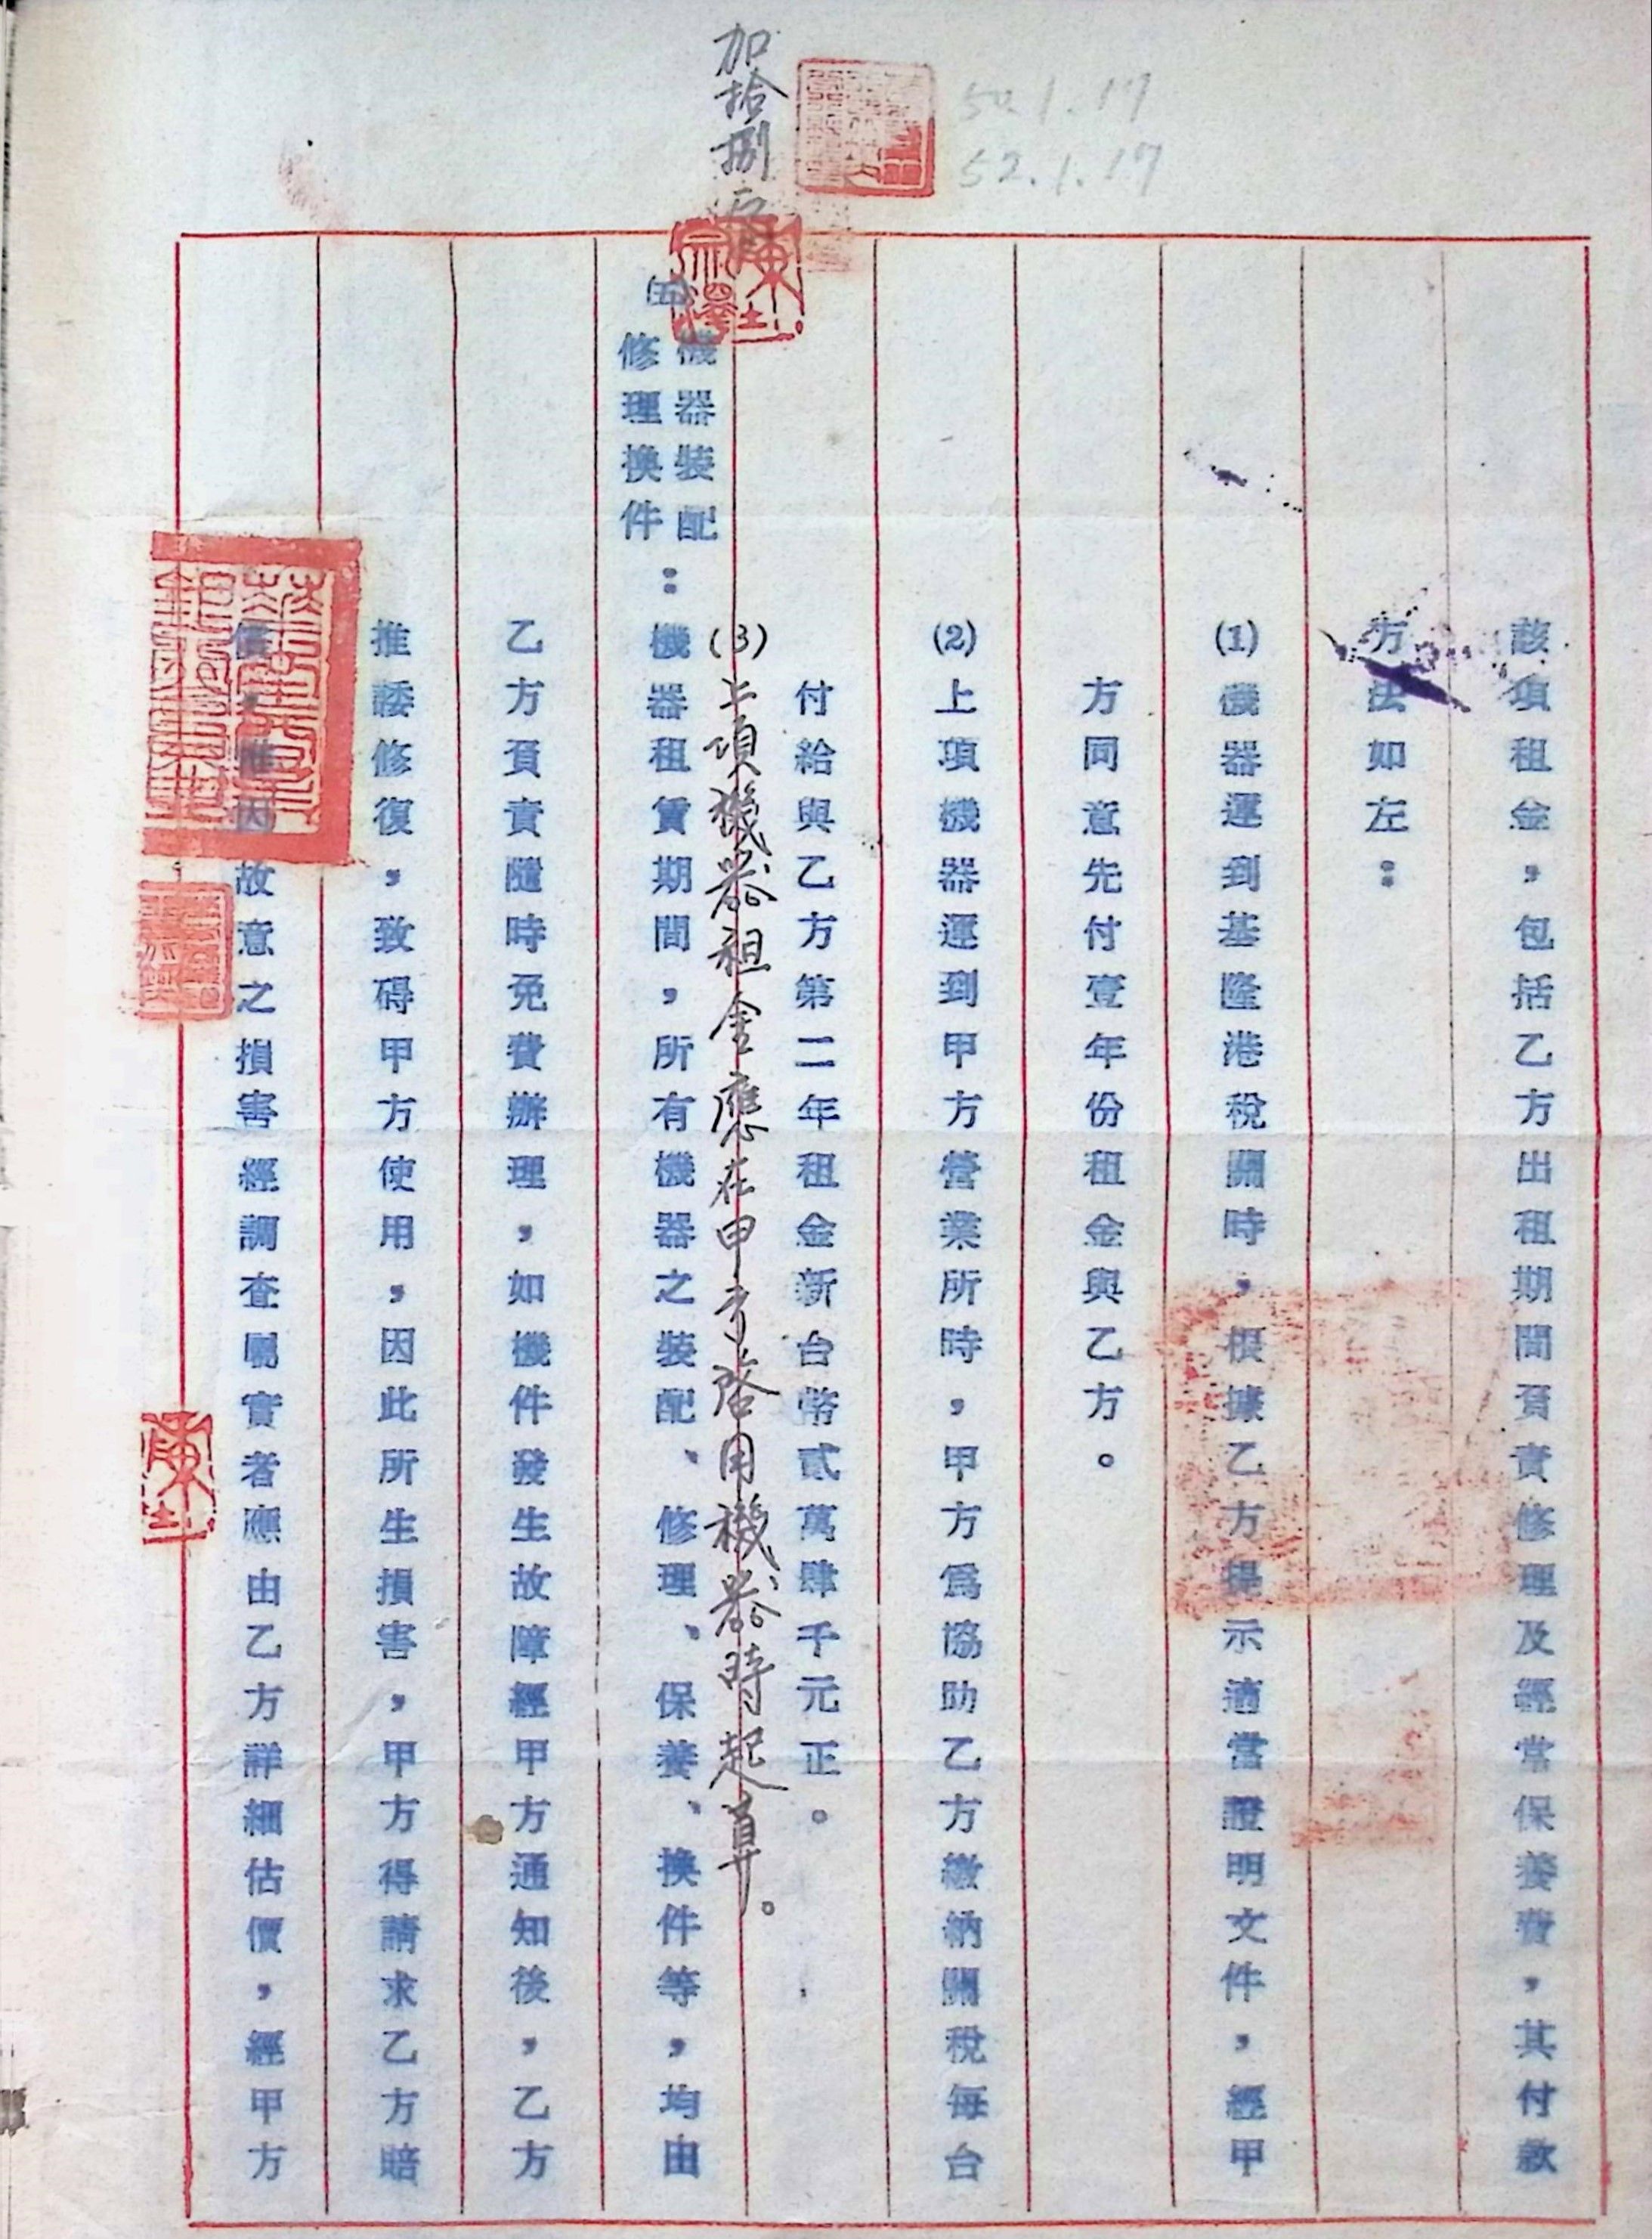 加拾捌字
50.1.17
52.1.17
該項租金，包括乙方出租期間負責修理及經常保養費，其付款
方法如左：
(1)機器運到基隆港稅關時，根據乙方提示適當證明文件，經甲
方同意先付壹年份租金與乙方。
(2)上項機器運到甲方營業所時，甲方爲協助乙方繳納關稅每台
付給與乙方第二年租金新台幣貳萬肆千元正。
(3)上項機器租金應在甲方啓用機器時起算。
㈤機器裝配
修理換件：機器租賃期間，所有機器之裝配、修理、保養、換件等，均由
乙方負責隨時免費辦理，如機件發生故障經甲方通知後，乙方
推諉修復，致碍甲方使用，因此所生損害，甲方得請求乙方賠
償，惟因故意之損害經調查屬實者應由乙方詳細估價，經甲方